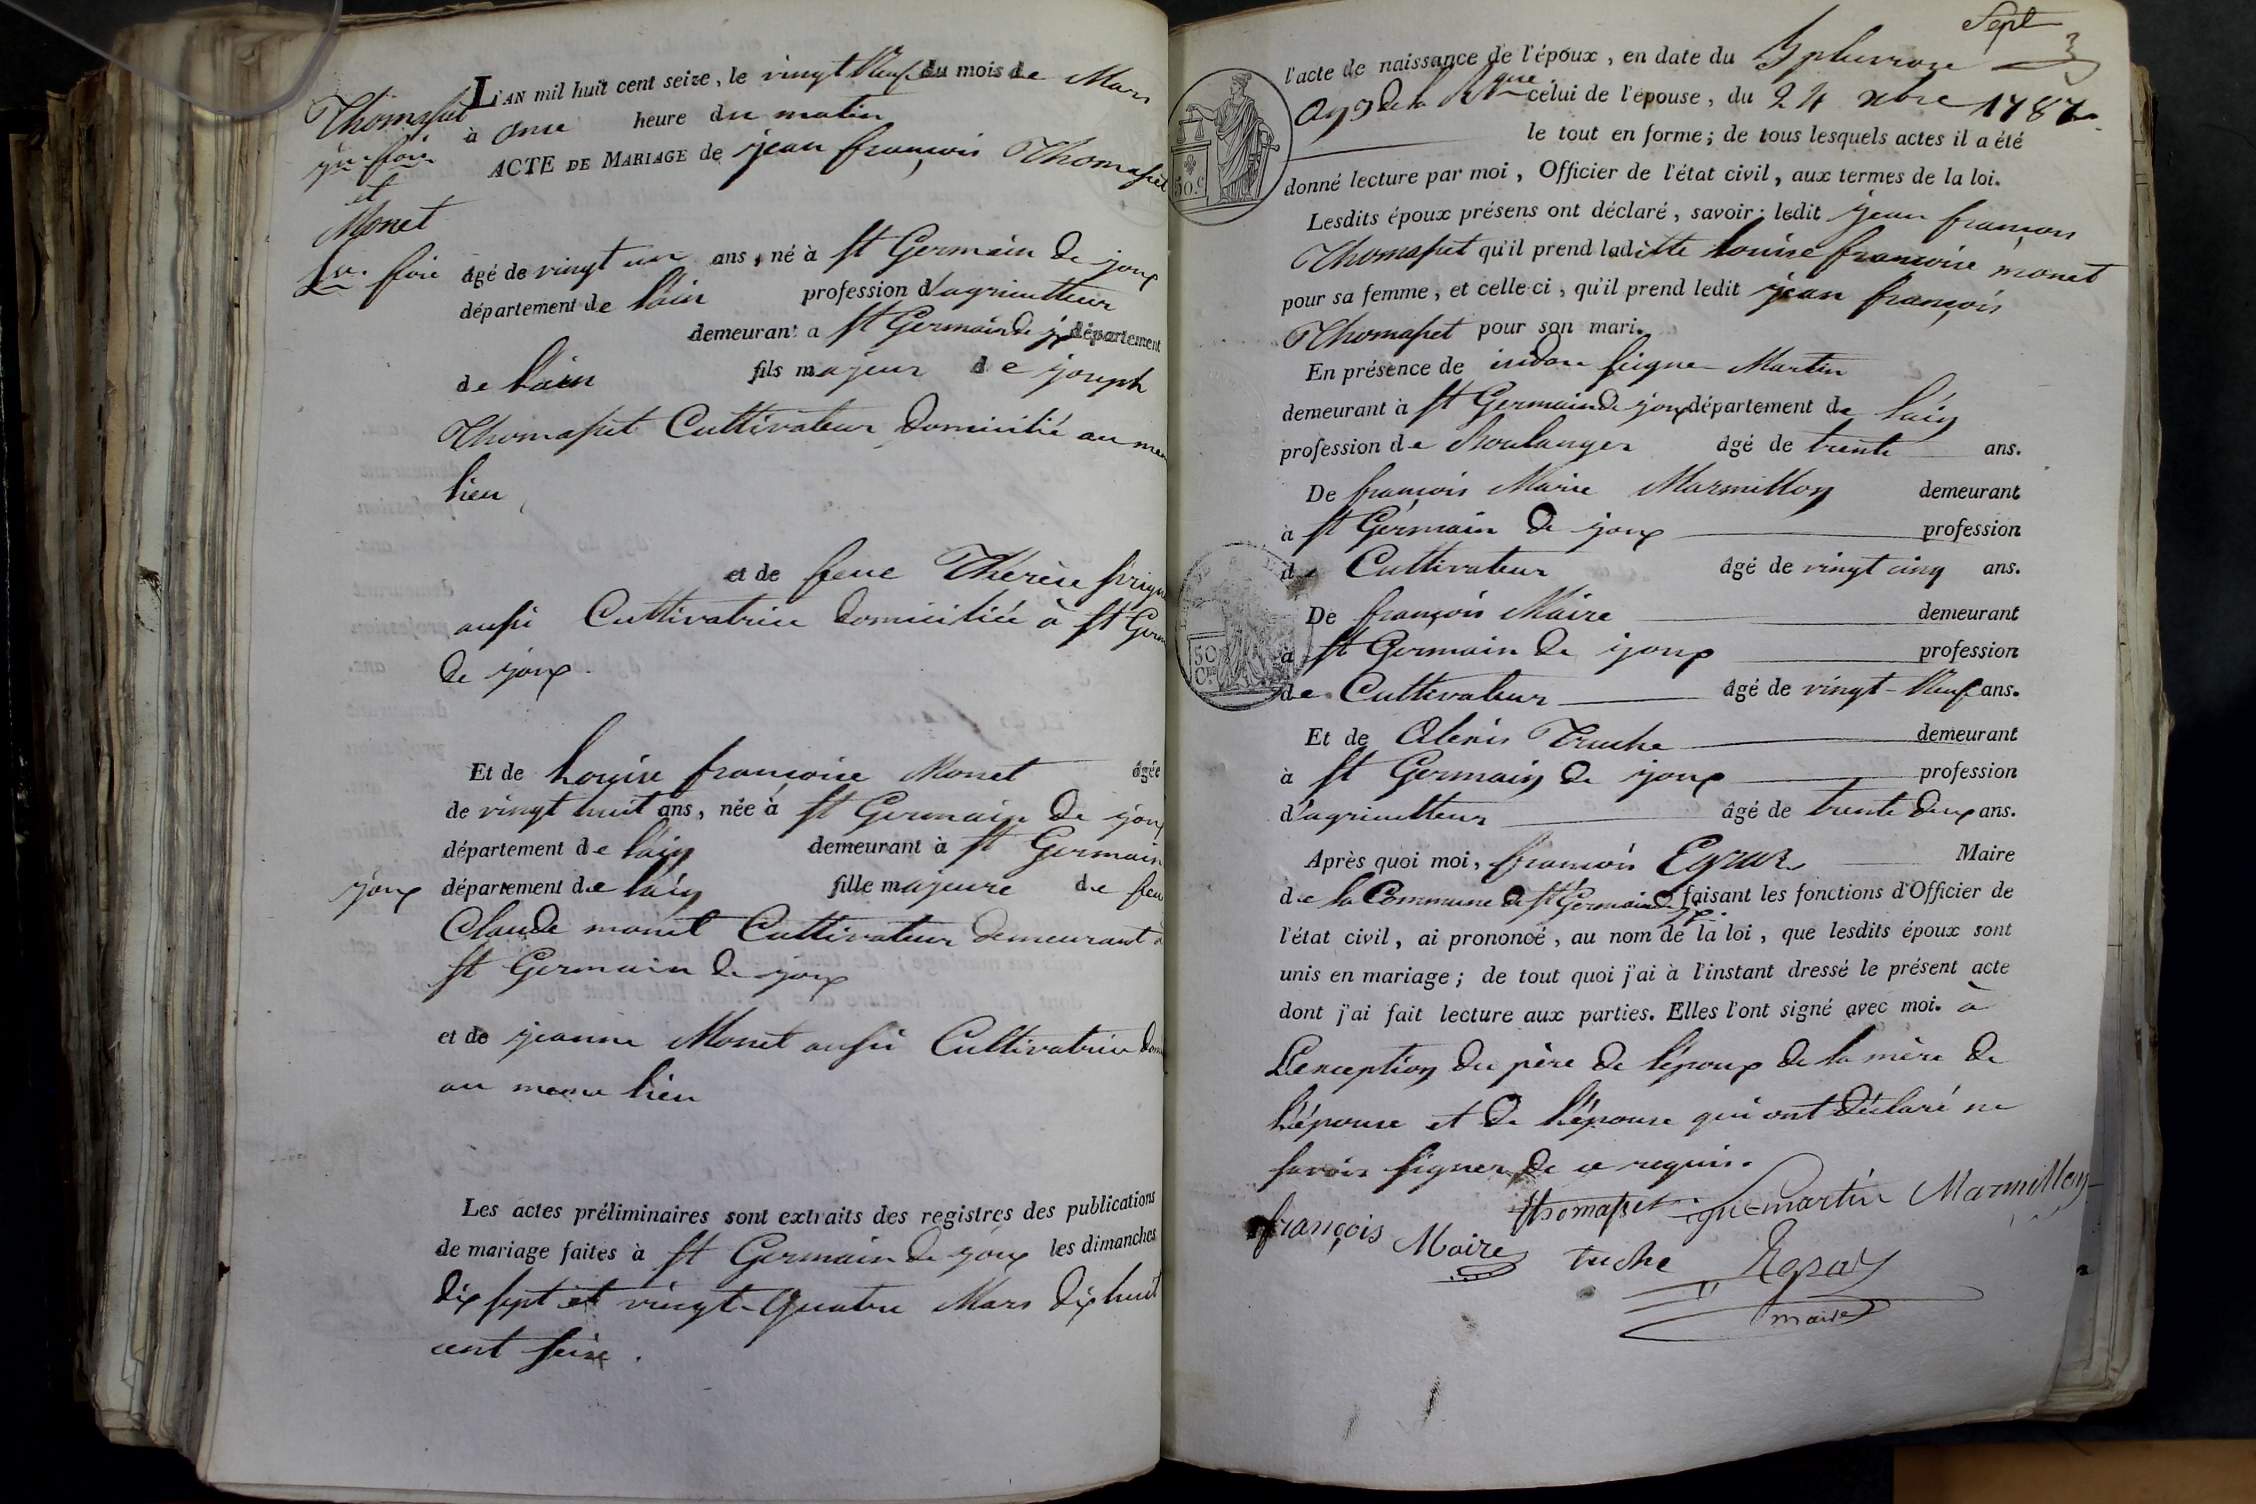 Thomasset
jn fois
et
Monet
Lse. foise
L'AN mil huit cent seize, le vingt Neuf du mois de Mars
à onze heure du matin
ACTE DE MARIAGE de jean françois Thomasset
âgé de vingt un ans, né à St Germain de joux
département de l'ain profession d'agriculteur
demeurant a St Germain de jx département
de l'ain fils majeur de joseph
Thomasset Cultivateur domicilié au me
lieu
et de feue Thérèse
aussi Cultivatrice domiciliée à St Germ
de joux.
Et de Louise françoise Monet âgée
de vingt huit ans, née à St Germain de joux
département de l'ain demeurant à St Germain
joux département de l'ain fille majeure de feu
Claude monet Cultivateur demeurant à
St Germain de joux
et de jeanne Monet aussi Cultivatrice dom
au meme lieu
Les actes préliminaires sont extraits des registres des publications
de mariage faites à St Germain de joux les dimanches
dix sept et vingt-quatre Mars dix huit
cent seize.
Sept
l'acte de naissance de l'époux, en date du 3 pluviose
an 3 de la Rque celui de l'épouse, du 24 xbre 1787
le tout en forme; de tous lesquels actes il a été
donné lecture par moi, Officier de l'état civil, aux termes de la loi.
Lesdits époux présens ont déclaré, savoir: ledit jean françois
Thomasset qu'il prend laditte Louise françoise monet
pour sa femme, et celle-ci, qu'il prend ledit jean françois
Thomasset pour son mari.
En présence de Martin
demeurant à St Germain de joux département de l'ain
profession de Boulanger âgé de trente ans.
De françois Marie Marmillon demeurant
à St Germain de joux profession
de Cultivateur âgé de vingt cinq ans.
De françois Maire demeurant
à St Germain de joux profession
de Cultivateur âgé de vingt-Neuf ans.
Et de Alexis Truche demeurant
à St Germain de joux profession
d'agriculteur âgé de trente deux ans.
Après quoi moi, françois Egraz Maire
de la Commune de St Germain de jx faisant les fonctions d'Officier de
l'état civil, ai prononcé, au nom de la loi, que lesdits époux sont
unis en mariage; de tout quoi j'ai à l'instant dressé le présent acte
dont j'ai fait lecture aux parties. Elles l'ont signé avec moi. à
L'exception du père de l'époux de la mère de
L'épouse et de L'épouse qui ont déclaré ne
savoir signer de ce requis.
thomasset martin Marmillon
françois Maire tuche Egraz
maire
50 c.
50 C.